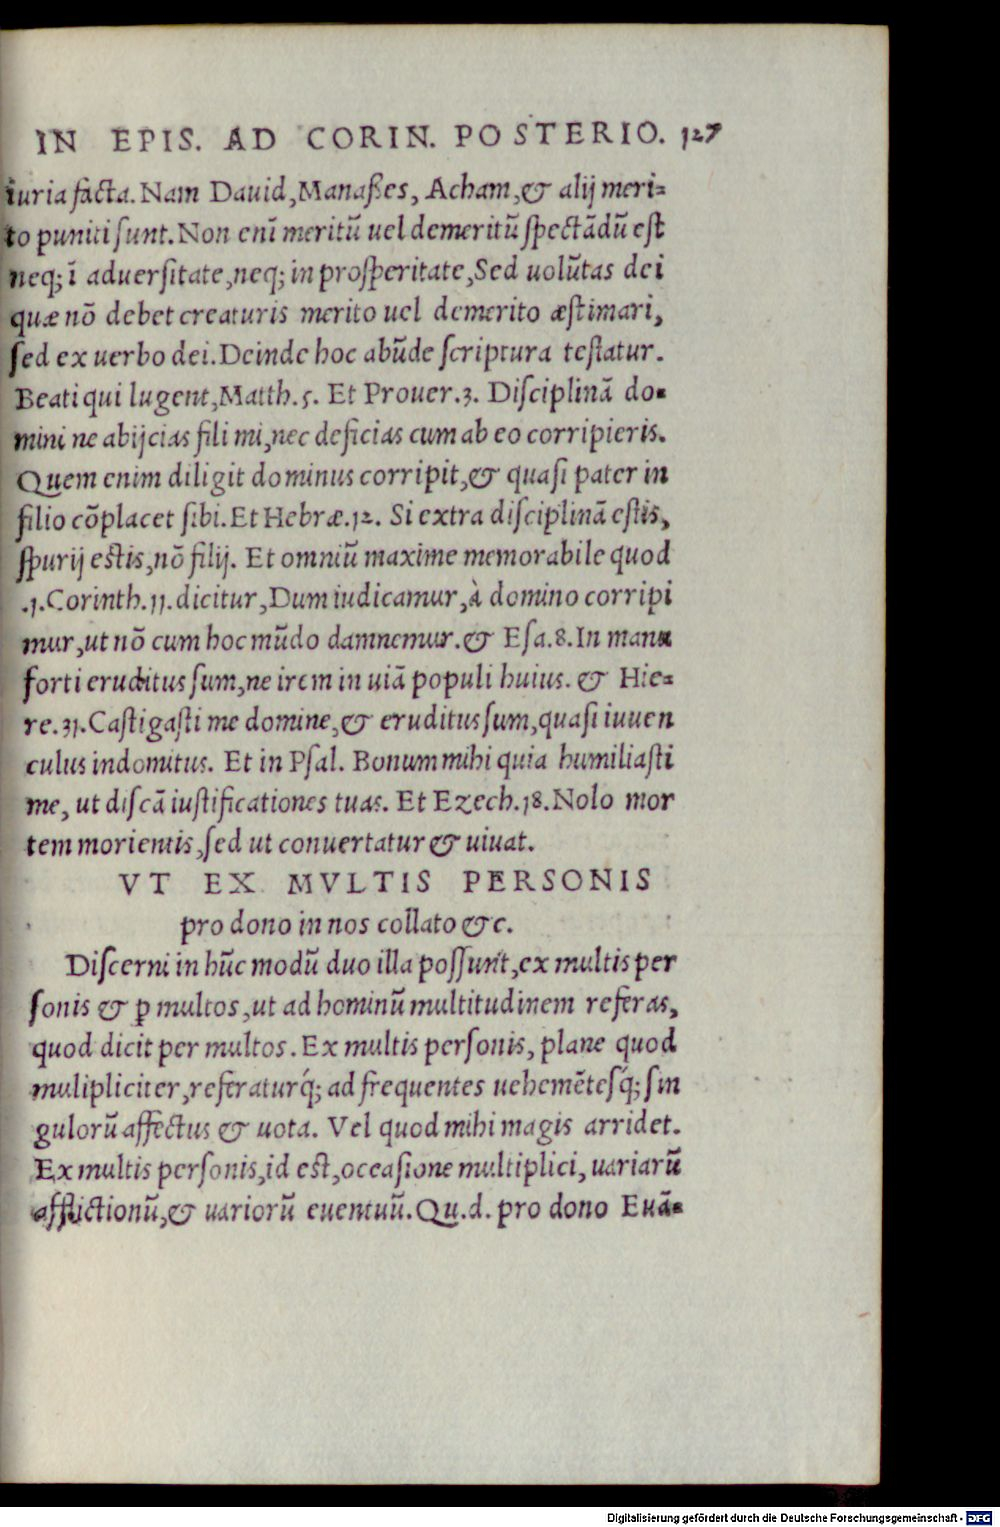 IN EPIS. AD CORIN. POSTERIO. 127
iuria facta. Nam Dauid, Manaßes, Acham, & alij meri-
to puniti sunt. Non enī meritū uel demeritū spectādū est
neq; ī aduersitate, neq; in prosperitate, Sed uolūtas dei
quæ nō debet creaturis merito uel demerito æstimari,
sed ex uerbo dei. Deinde hoc abūde scriptura testatur.
Beati qui lugent, Matth. 5. Et Prouer. 3. Disciplinā do-
mini ne abijcias fili mi, nec deficias cum ab eo corripieris.
Quem enim diligit dominus corripit, & quasi pater in
filio cōplacet sibi. Et Hebræ. 12. Si extra disciplinā estis,
spurij estis, nō filij. Et omniū maxime memorabile quod
.1. Corinth. 11. dicitur, Dum iudicamur, à domino corripi
mur, ut nō cum hoc mūdo damnemur. & Esa. 8. In manu
forti eruditus sum, ne irem in uiā populi huius. & Hie-
re. 31. Castigasti me domine, & eruditus sum, quasi iuuen
culus indomitus. Et in Psal. Bonum mihi quia humiliasti
me, ut discā iustificationes tuas. Et Ezech. 18. Nolo mor
tem morientis, sed ut conuertatur & uiuat.
VT EX MVLTIS PERSONIS
pro dono in nos collato &c.
Discerni in hūc modū duo illa possunt, ex multis per
sonis & ꝑ multos, ut ad hominū multitudinem referas,
quod dicit per multos. Ex multis personis, plane quod
mulipliciter, referaturq́; ad frequentes uehemētesq́; sin
gulorū affectus & uota. Vel quod mihi magis arridet.
Ex multis personis, id est, occasione multiplici, uariarū
afflictionū, & uariorū euentuū. Qu. d. pro dono Euā-
Digitalisierung gefördert durch die Deutsche Forschungsgemeinschaft - DFG